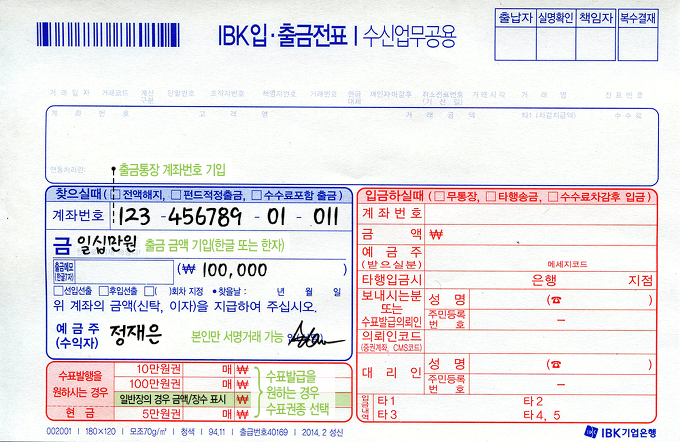 IBK 입·출금전표 | 수신업무공용
출납자 실명확인 책임자 복수결재
거래일자 거래코드 계산구분 단말번호 조작자번호 책명자번호 거래번호 현금대체 거래시각 거래명 전표번호
계좌번호 고객명 거래금액 타1 (차감지급액) 수수료
연동처리란:
출금통장 계좌번호 기입
찾으실때 (□전액해지, □펀드적정출금, □수수료포함 출금)
계좌번호 123 - 456789 - 01 - 011
금 일십만원 출금 금액 기입(한글 또는 한자)
출금메모
(한글7자)
(₩ 100,000 )
□선입선출 □후입선출 □( )회차 지정 •찾을날: 년 월 일
위 계좌의 금액(신탁, 이자)을 지급하여 주십시오.
예금주
(수익자) 정재은 본인만 서명거래 가능
수표발행을
원하시는 경우
10만원권 매 ₩
100만원권 매 ₩
일반장의 경우 금액/장수 표시 ₩
현금 5만원권 매 ₩
수표발급을
원하는 경우
수표권종 선택
입금하실때 (□무통장, □타행송금, □수수료차감후 입금)
계좌번호
금액 ₩
예금주
(받으실분) 메세지코드
타행입금시 은행 지점
보내시는분
또는
수표발급의뢰인
성명 (☎ )
주민등록
번호 –
의뢰인코드
(증권계좌, CMS코드)
대리인
성명 (☎ )
주민등록
번호 –
입금내역
타1 타2
타3 타4, 5
002001 | 180×120 | 모조70g/㎡ | 청색 | 94.11 | 출급번호40169 | 2014. 2 성신
IBK기업은행